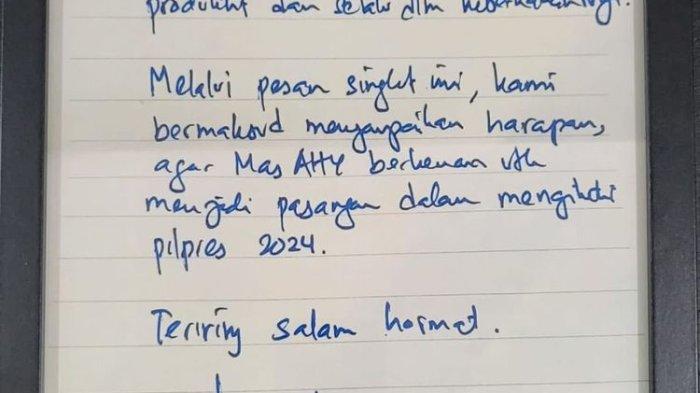 produktif dan selalu dlm
Melalui pesan singkat ini, kami
bermaksud menyampaikan harapan,
agar Mas AHY berkenan utk
menjadi pasangan dalam mengikuti
pilpres 2024.
Teriring salam hormat.